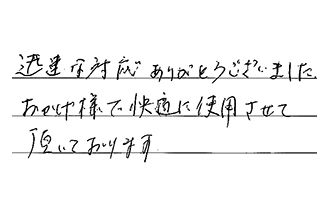 迅速な対応ありがとうございました
おかげ様で快適に使用させて
頂いております